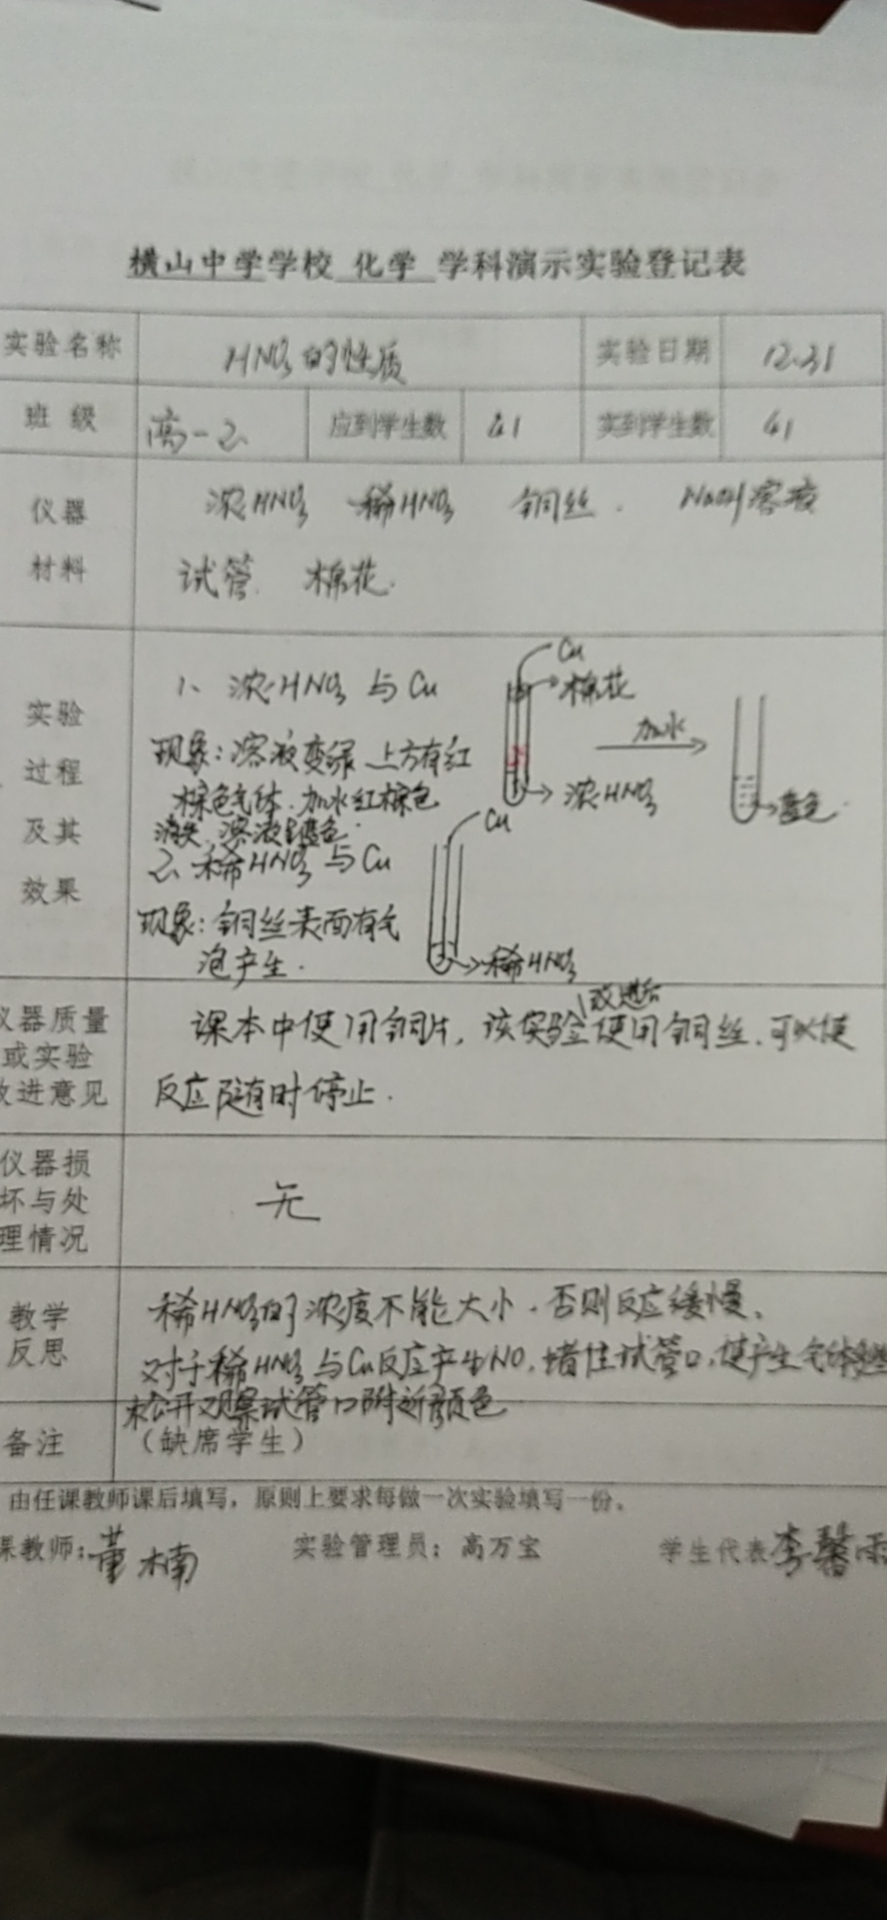 横山中学学校 化学 学科演示实验登记表
实验名称 HNO₃的性质 实验日期 12.31
班 级 高一2 应到学生数 41 实到学生数 41
仪器 浓HNO₃ 稀HNO₃ 铜丝. NaOH溶液
材料 试管. 棉花.
实验
过程
及其
效果
1、浓HNO₃与Cu
现象:溶液变绿 上方有红
棕色气体.加水红棕色
消失,溶液呈蓝色.
Cu
棉花
浓HNO₃
加水
蓝色.
2、稀HNO₃与Cu
现象:铜丝表面有气
泡产生.
Cu
稀HNO₃
仪器质量
或实验
改进意见
改进后
课本中使用铜片,该实验使用铜丝.可以使
反应随时停止.
仪器损
坏与处
理情况
无
教学
反思
稀HNO₃的浓度不能太小.否则反应缓慢.
对于稀HNO₃与Cu反应产生NO,堵住试管口,使产生气体
松开观察试管口附近颜色
备注 (缺席学生)
由任课教师课后填写,原则上要求每做一次实验填写一份。
课教师:董楠 实验管理员:高万宝 学生代表 李馨雨